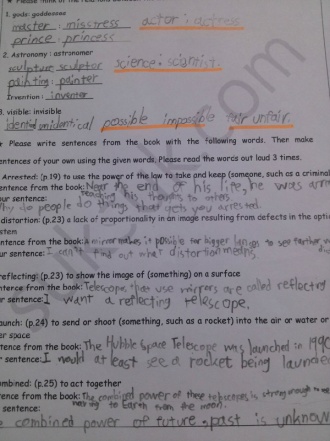 1. gods: goddesses
master : misstress actor : actress
prince : princess
2. Astronomy : astronomer
sculpture sculptor science : scientist.
painting : painter
Invention : inventer
3. visible: invisible
identical unidentical possible impossible fair unfair.
Please write sentences from the book with the following words. Then make
sentences of your own using the given words. Please read the words out loud 3 times.
Arrested: (p.19) to use the power of the law to take and keep (someone, such as a criminal)
sentence from the book: Near the end of his life, he was
his thoughts to others
ur sentence: do people do things that gets you arrested.
distortion: (p.23) a lack of proportionality in an image resulting from defects in the optic
stem
entence from the book: A mirror makes it possible for bigger lenses to see farther
ur sentence: I can't find out what distortion means.
reflecting: (p.23) to show the image of (something) on a surface
ntence from the book: Telescope that use mirrors are called reflectring
r sentence: I want a reflecting telescope.
aunch: (p.24) to send or shoot (something, such as a rocket) into the air or water or
er space
tence from the book: The Hubble Space Telescope was launched in 1990
r sentence: I would at least see a rocket being launched
ombined: (p.25) to act together
tence from the book: The combined power of these telescopes is strong enough to
to Earth from the moon.
sentence:
e combined power of future, past is unknow